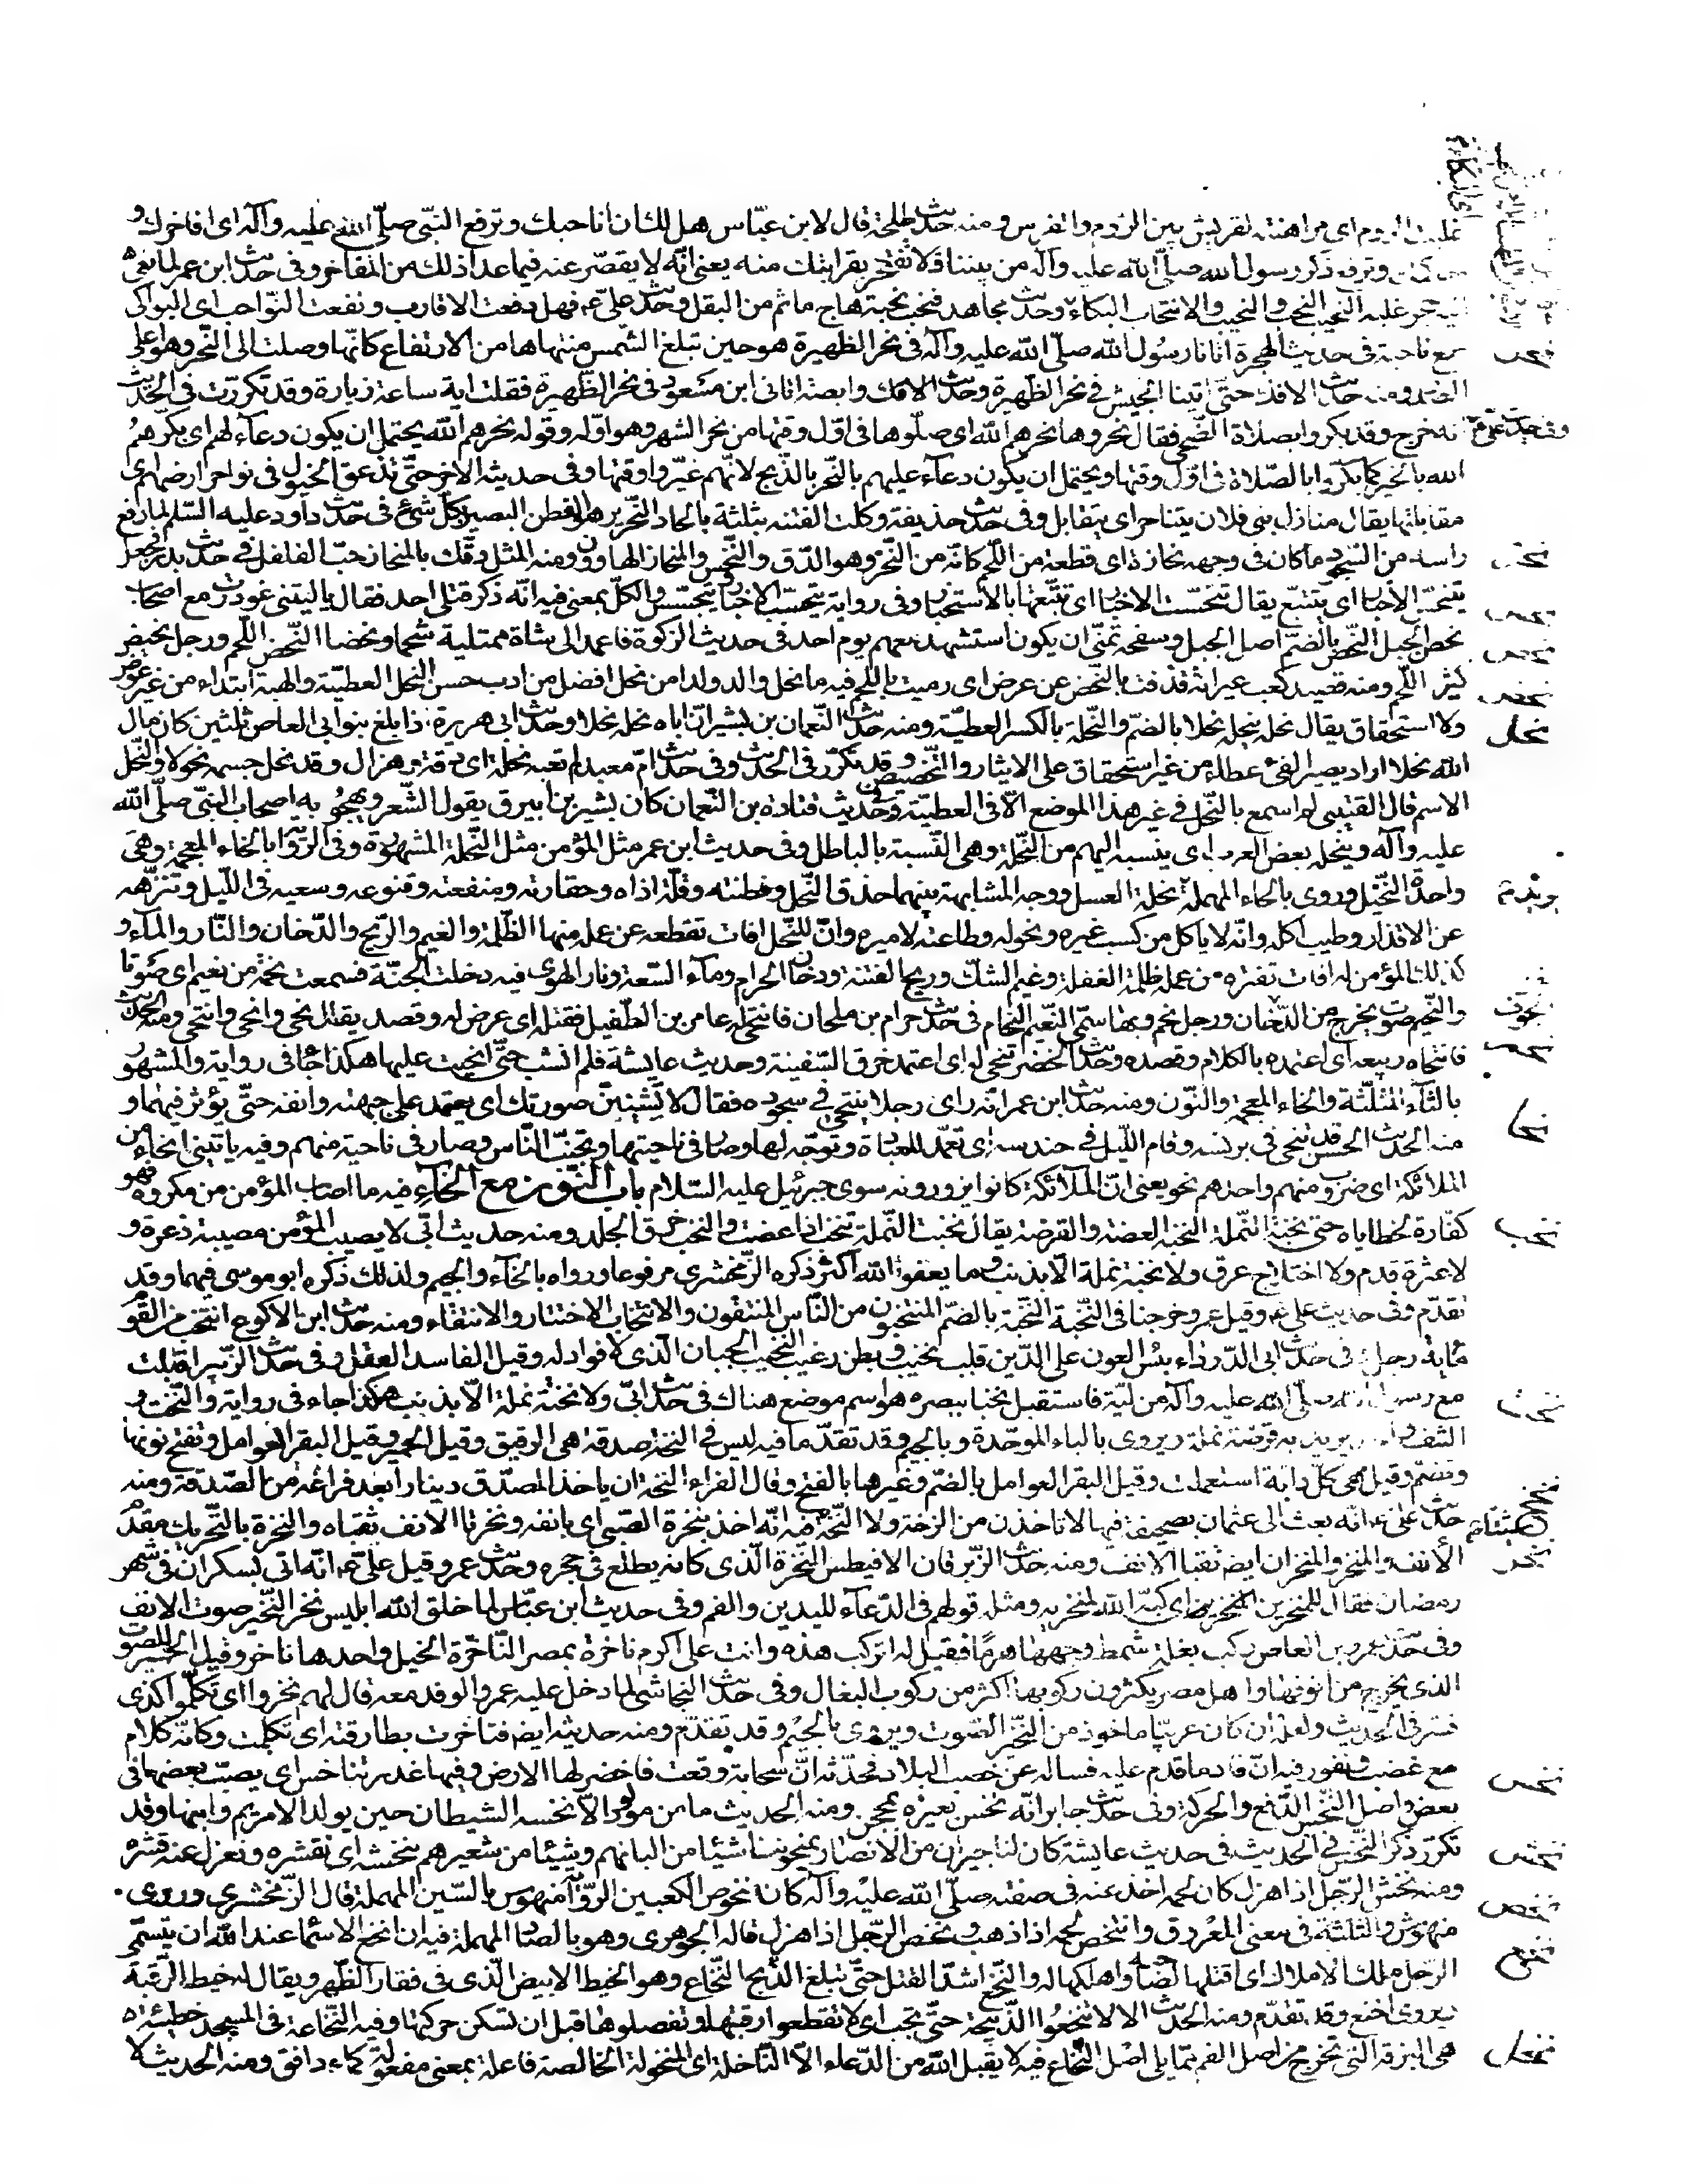 غلبت الروم اى مراهنته لقريش بين الروم والفرس ومنه حديث طلحة قال لابن عبّاس هل لك ان اناحبك وترفع النبّى صلّى الله عليه وآله اى افاخرك و
وترفع ذكر رسول الله صلّى الله عليه وآله من بيننا فلا تفتخر بقرابتك منه يعنى انّه لا يقصّر عنه فيما عدا ذلك من المفاخر وفى حديث ابن عمر لما نعى
حجر غلبه النحيب النحب والنحيب والانتحاب البكاء وحديث مجاهد فنحب نحبة هاج ما ثم من البقل وحديث علىّ ع فهل دفعت الاقارب و نفعت النّواحب اى البواكى
جمع ناحبة فى حديث الهجرة اتانا رسول الله صلّى الله عليه وآله فى نحر الظهيرة هو حين تبلغ الشّمس منتهاها من الارتفاع كانّها وصلت الى النّحر وهو اعلى
الصدر ومنه حديث الافك حتّى اتينا الجيش فى نحر الظهيرة وحديث وابصة اتانى ابن مسعود فى نحر الظّهيرة فقلت اية ساعة زيارة وقد تكرّرت فى الحديث
وفى حديث علىّ ع انه خرج وقد بكروا بصلاة الضّحى فقال نحروها نحرهم الله اى صلّوها فى اوّل وقتها من نحر الشهر وهو اوّله وقوله نحرهم الله يحتمل ان يكون دعاء لهم اى بكّرهمُ
الله بالخير كما بكّروا بالصّلاة فى اوّل وقتها ويحتمل ان يكون دعاء عليهم بالنّحر بالذّبح لانّهم غيّروا وقتها وفى حديثه الاخر حتّى تدعق الخيول فى نواحر ارضهم اى
مقابلاتها يقال منازل بنى فلان يتناحر اى يتقابل وفى حديث حذيفة وكلت الفتنه بثلثة بالحادّ النّحرير هو الفطن البصير بكلّ شئ فى حديث داود عليه السّلم لما رفع
راسه من السّجود ما كان فى وجهه نحازة اى قطعة من اللّحم كانّه من النّحز وهو الدّق والنّخس والمنحاز الهاون ومنه المثل دقّك بالمنحاز حبّ الفلفل فى حديث بدر فجعل
يتنحّس الاخبار اى يتتبّع يقال تنحّست الاخبار اى تتبّعتها بالاستخبار وفى رواية يتحسّب الاخبار ويتحسّس والكلّ بمعنى فيه انّه ذكر قتلى احد فقال ياليتنى غودرت مع اصحاب
نحص الجبل النّحص بالضمّ اصل الجبل وسفحه تمنّى ان يكون استشهد معهم يوم احد فى حديث الزكوة فاعمد الى شاة ممتلية شحما ونحضا النّحض اللّحم ورجل نحيض
كثير اللّحم ومنه قصيد كعب عيرانة قذفت بالنّحض عن عرض اى رميت باللّحم فيه ما نحل والد ولدا من نحل افضل من ادب حسن النّحل العطيّة والهبة ابتداء من غير عوض
ولا استحقاق يقال نحله ينحله نحلا بالضمّ والنّحلة بالكسر العطيّة ومنه حديث النّعمان بن بشير انّ اباه نحله نحلا وحديث ابى هريرة اذا بلغ بنو ابى العاص ثلثين كان مال
الله نحلا اراد يصير الفئ عطاء من غير استحقاق على الايثار والتّخصيص وقد تكرّر فى الحديث وفى حديث امّ معبد لم تعبه نحلة اى دقة وهزال وقد نحل جسمه نحولا والنّحل
الاسم قال القتيبى لم اسمع بالنّحل فى غير هذا الموضع الّا فى العطيّة وفى حديث قتادة بن النّعمان كان بشير بن ابيرق يقول الشّعر ويهجو به اصحاب النبّى صلّى الله
عليه وآله وينحله بعض العرب اى ينسبه اليهم من النّحلة وهى النّسبة بالباطل وفى حديث ابن عمر مثل المؤمن مثل النّحلة المشهورة وفى الرّواية بالخاء المعجمة وهى
واحدة النّخل وروى بالحاء المهملة يريد نحلة العسل ووجه المشابهة بينهما حذق النّحل وفطنته وقلّة اذاه وحقارته ومنفعته وقنوعه وسعيه فى اللّيل وتنزّهه
عن الاقذار وطيب اكله وانّه لا ياكل من كسب غيره ونحوله وطاعته لاميره وانّ للنّحل افات تقطعه عن عمله منها الظّلمة والغيم والرّيح والدّخان والنّار والمآء و
كذلك المؤمن له افات تفتره من عمله ظلمة الغفلة وغيم الشكّ وريح الفتنة ودخان الحرام ومآء السّعة ونار الهوى فيه دخلت الجنّة فسمعت نحمة من نعيم اى صوتا
والنّحيم صوت يخرج من الجوف ورجل نحم وبها سمّى النّعيم النّحام فى حديث حرام بن ملحان فانتحى له عامر بن الطّفيل فقتله اى عرض له وقصد يقال نحى وانحى وانتحى ومنه الحديث
فانتحاه ربيعة اى اعتمده بالكلام وقصده وحديث الخضر تنحى له اى اعتمد خرق السّفينة وحديث عايشة فلم انشب حتّى انحيت عليها هكذا جاء فى رواية والمشهور
بالثّآء المثلّثة والخاء المعجمة والنّون ومنه حديث ابن عمر انّه راى رجلا ينتحى فى سجوده فقال لا تشيننّ صورتك اى يعتمد على جبهته وانفه حتّى يؤثر فيهما و
منه الحديث الحسن قد تنحى فى برنسه وقام اللّيل فى حندسه اى تعمّد للعبادة وتوجّه لها وصار فى ناحيتها وتجنّب النّاس وصار فى ناحية منهم وفيه ياتينى انحاء من
الملائكة اى ضروب منهم واحدهم نحو يعنى انّ الملآئكة كانوا يزورونه سوى جبرئيل عليه السّلام باب النّون مع الخآء فيه ما اصاب المؤمن من مكروه فهو
كفّارة لخطاياه حتى نخبة النّملة النخبة العضّة والقرصة يقال نخبت النّملة تنخب اذا عضّت والنخب خرق الجلد ومنه حديث ابىّ لا يصيب المؤمن مصيبة ذعرة و
لا عثرة قدم ولا اختلاج عرق ولا نخبة نملة الّا بذنب وما يعفو الله اكثر ذكره الزّمخشرى مرفوعا ورواه بالخآء والجيم ولذلك ذكره ابو موسى فيهما وقد
تقدّم وفى حديث علىّ ع وقيل عمر وخرجنا فى النّخبة النّخبة بالضمّ المنتخبون من النّاس المنتقون والانتخاب الاختيار والانتقاء ومنه حديث ابن الاكوع انتخب من القوم
مأية رجل وفى حديث ابى الدّرداء بئس العون على الدّين قلب نخيب وبطن رغيب النّخيب الجبان الّذى لا فواد له وقيل الفاسد العقل وفى حديث الزّبير اقبلت
مع رسول الله صلّى الله عليه وآله من ليّة فاستقبل نخبا ببصره هو اسم موضع هناك فى حديث ابىّ ولا نختة نملة الّا بذنب هكذا جاء فى رواية والنّخت و
النّتف واحد يريد به قرصة نملة ويروى بالباء الموحّدة وبالجيم وقد تقدّما فيه ليس فى النخّة صدقة هى الرقيق وقيل الحمير وقيل البقر العوامل وتفتح نونها
وتضمّ وقيل هى كلّ دابة استعملت وقيل البقر العوامل بالضمّ وغيرها بالفتح وقال الفراء النخّة ان ياخذ المصدّق دينارا بعد فراغه من الصّدقة ومنه
حديث علىّ ع انّه بعث الى عثمان بصحيفة فيها لا تاخذن من الزخّة ولا النّخّة شيئا فيه انّه اخذ بنخرة الصّبى اى بانفه ونخرتا الانف ثقباه والنخرة بالتّحريك مقدّم
الأنف والمنخر والمنخران ايضا ثقبا الانف ومنه حديث الزّبرقان الافيطس النّخرة الّذى كانه يطلع فى حجره وحديث عمر وقيل علىّ ع انّه اتى بسكران فى شهر
رمضان فقال للمنخرين للمنخرين اى كبّه الله لمنخريه ومثله قولهم فى الدّعآء لليدين والفم وفى حديث ابن عبّاس لما خلق الله ابليس نخر النّخير صوت الانف
وفى حديث عمرو بن العاص ركب بغلة شمط وجهها هرما فقيل له اتركب هذه وانت على اكرم ناخرة بمصر النّاخرة الخيل واحدها ناخر وقيل الحمير للصّوت
الذى يخرج من انوفها واهل مصر يكثرون ركوبها اكثر من ركوب البغال وفى حديث النجاشى لما دخل عليه عمرو والوفد معه قال لهم نخروا اى تكلّموا كذى
فسّر فى الحديث ولعله ان كان عربيّا ماخوذ من النّخير الصّوت ويروى بالجيم وقد تقدّم ومنه حديثه ايضا فتناخرت بطارقته اى تكلّمت وكانّه كلام
مع غضب ونفور فيه انّ قادما قدم عليه فساله عن خصب البلاد فحدّثه انّ سحابة وقعت فاخضر لها الارض وفيها غدر تناخس اى يصبّ بعضها فى
بعض واصل النّخس الدّفع والحركة وفى حديث جابر انّه نخس بعيره بمحجن ومنه الحديث ما من مولود الّا نخسه الشيطان حين يولد الا مريم وابنها وقد
تكرّر ذكر النّخس فى الحديث فى حديث عايشة كان لنا جيران من الانصار يمنحوننا شيئا من البانهم وشيئا من شعير هم ننخشه اى نقشره ونعزل عنه قشره
ومنه نخش الرّجل اذا هزل كان لحمه اخذ عنه فى صفته صلّى الله عليه وآله كان منخوص الكعبين الرّواية منهوس بالسّين المهملة قال الزّمخشرى وروى
منهوش والثلثة فى معنى المعروق وانتخص لحمه اذا ذهب ونخص الرّجل اذا هزل قاله الجوهرى وهو بالصّاد المهملة فيه ان انخع الاسماء عند الله ان يتسمّى
الرجل ملك الاملاك اى اقتلها لصاحبه واهلكها له والنّخع اشدّ القتل حتّى يبلغ الذّبح النّخاع وهو الخيط الابيض الّذى فى فقار الظّهر ويقال له خيط الرّقبة
ويروى اخنع وقد تقدّم ومنه الحديث الا لا تنخعوا الذّبيحة حتّى تجب اى لا تقطعوا رقبتها وتفصلوها قبل ان تسكن حركتها وفيه النّخاعة فى المسجد خطيئة
هى البزقة التى تخرج من اصل الفم ممّا يلى اصل النّخاع فيه لا يقبل الله من الدّعاء الّا النّاخلة اى المنخولة الخالصة فاعلة بمعنى مفعولة كماء دافق ومنه الحديث لا